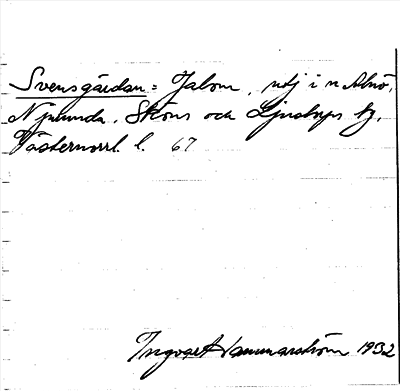 Svensgårdan = Jalom, utj i n Alnö,
Njurunda, Sköns och Ljustorps sg.
Västernorrl. l. 67
Ingvar Hammarström 1932